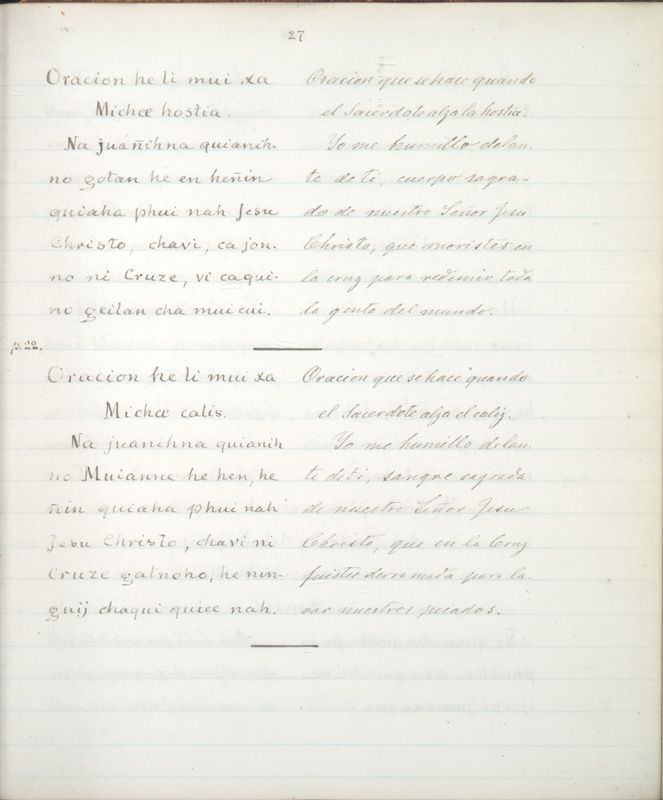 27
Oracion he li mui xa
Michæ hostia.
Na juañihna quianih-
no gotan he en heñin
quiaha phui nah Jesu
Christo, chavi, ca jon-
no ni Cruze, vi caqui-
no geitan cha mui cui.
Oracion que se hace quando
el Sacerdote alza la hostia.
Yo me humillo delan-
te de ti, cuerpo sagra-
do de nuestro Señor Jesu
Christo, que moristes en
la cruz para redimir toda
la gente del mundo.
p.22.
Oracion he li mui xa
Michæ calis.
Na juanihna quianih
no Muianne he hen, he
ñin quiaha phui nah
Jesu Christo, chavi ni
Cruze gatnoho, he nin-
guij chaqui quiee nah.
Oracion que se hace quando
el Sacerdote alza el caliz.
Yo me humillo delan-
te de ti, sangre sagrada
de nuestro Señor Jesu
Christo, que en la Cruz
fuistes derramada para la-
var nuestros pecados.